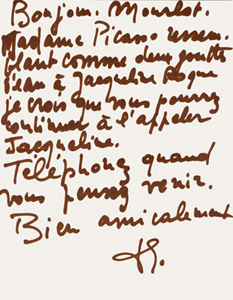 Bonjour Mourlot.
Madame Picasso ressem.
blant comme deux gouttes
d'eau à Jacqueline Roque
je crois que vous pourrez
continuer à l'appeler
Jacqueline.
Téléphonez quand
vous pensez venir.
Bien amicalement